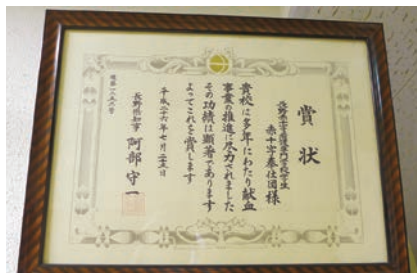 賞状
長野県赤十字看護専門学校学生
赤十字奉仕団様
貴校は多年にわたり献血
事業の推進に尽力されました
その功績は顕著であります
よってこれを賞します
平成二十六年七月二十五日
長野県知事 阿部守一